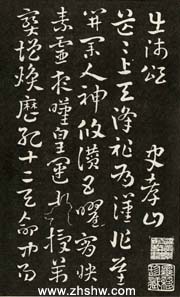 出師頌 史孝山
茫〻上天降祚為漢作基
開業人神攸讚五曜霄映
素靈夜嘆皇運來授萬
寶增煥歷紀十二天命中易
www.zhshw.com